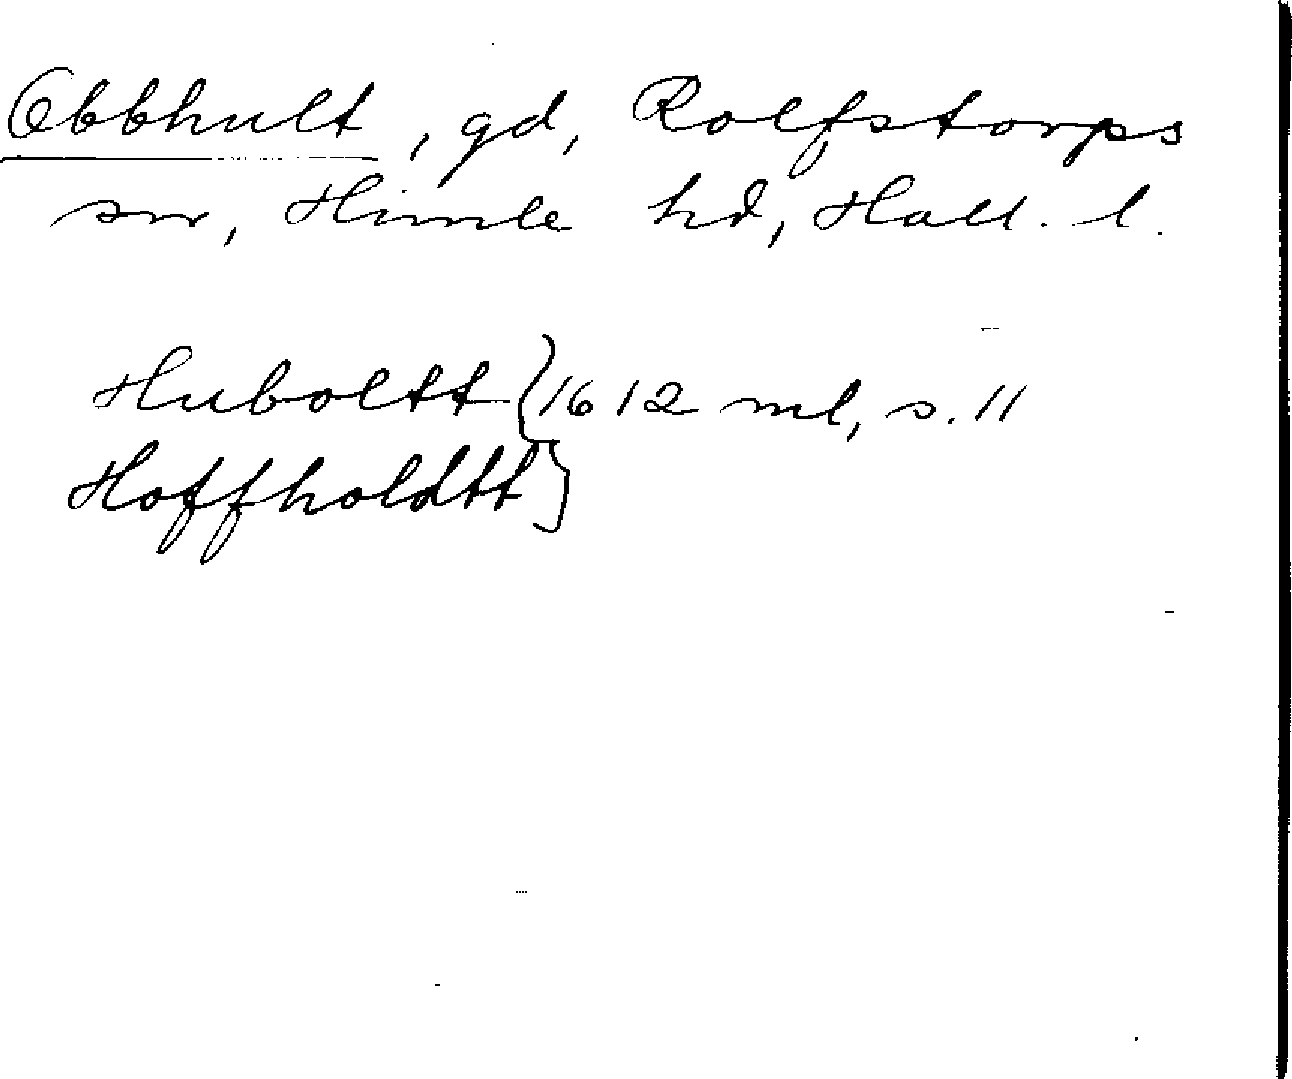 Obbhult, gd, Rolfstorps
sn, Himle hd, Hall. l.
Huboltt } 1612 ml, s. 11
Hoffholdtt }